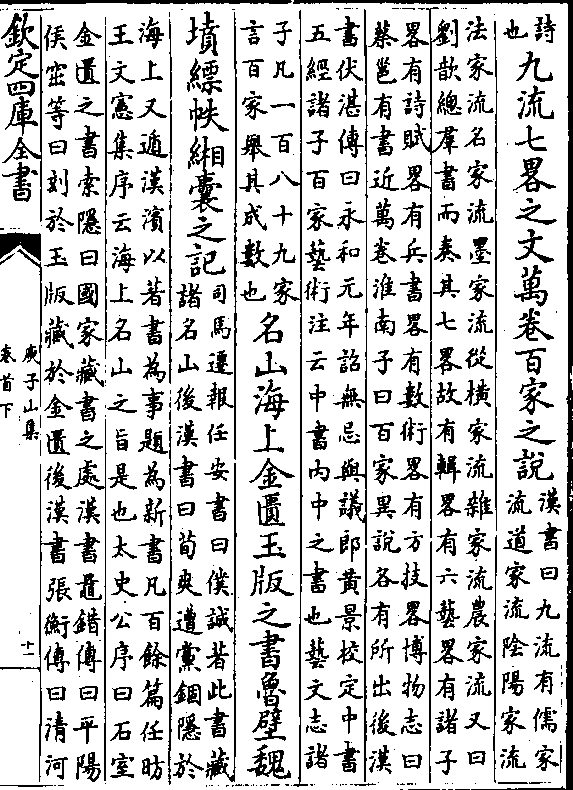 詩
也
九流七畧之文萬卷百家之說
漢書曰九流有儒家
流道家流陰陽家流
法家流名家流墨家流從横家流雜家流農家流又曰
劉歆總羣書而奏其七畧故有輯畧有六藝畧有諸子
畧有詩賦畧有兵書畧有數術畧有方技畧博物志曰
蔡邕有書近萬卷淮南子曰百家異說各有所出後漢
書伏湛傳曰永和元年詔無忌與議郎黄景校定中書
五經諸子百家藝術注云中書内中之書也藝文志諸
子凡一百八十九家
言百家舉其成數也
名山海上金匱玉版之書魯壁魏
墳縹帙緗囊之記
司馬遷報任安書曰僕誠著此書藏
諸名山後漢書曰荀爽遭黨錮隱於
海上又遁漢濱以著書為事題為新書凡百餘篇任昉
王文憲集序云海上名山之旨是也太史公序曰石室
金匱之書索隱曰國家藏書之處漢書鼂錯傳曰平陽
侯窋等曰刻於玉版藏於金匱後漢書張衡傳曰清河
欽定四庫全書
庾子山集
卷首下
十一